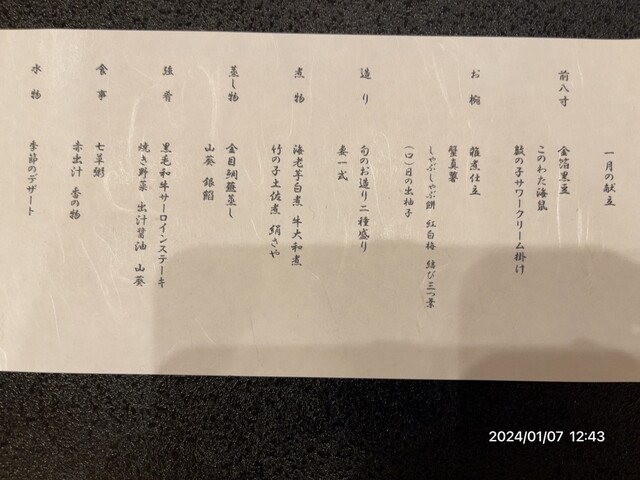 一月の献立
前八寸
金箔黒豆
このわた海鼠
数の子サワークリーム掛け
お椀
雑煮仕立
蟹真薯
しゃぶしゃぶ餅 紅白梅 結び三つ葉
(口)日の出柚子
造り
旬のお造り二種盛り
妻一式
煮物
海老芋白煮 牛大和煮
竹の子土佐煮 絹さや
蒸し物
金目鯛蕪蒸し
山葵 銀餡
強肴
黒毛和牛サーロインステーキ
焼き野菜 出汁醤油 山葵
食事
七草粥
赤出汁 香の物
水物
季節のデザート
2024/01/07 12:43